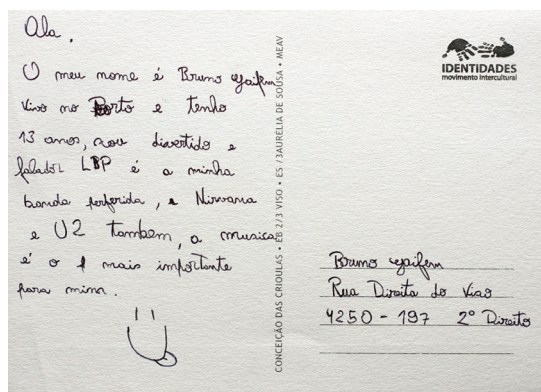 Ola.
O meu nome é Bruno
vivo no Porto e tenho
13 anos, sou divertido e
falador LBP é a minha
banda perferida, e Nirvana
e U2 tambem, a musica
é o + mais importante
para mim.
CONCEIÇÃO DAS CRIOULAS • EB 2/3 VISO • ES /3AURÉLIA DE SOUSA • MEAV
IDENTIDADES
movimento intercultural
Bruno
Rua Direita do Viso
4250 - 197 2º Direito